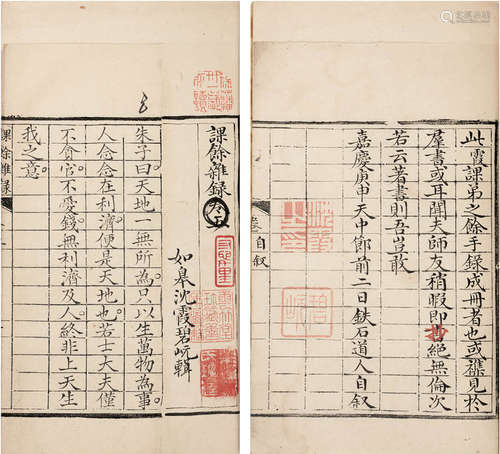 此霞課弟之餘手錄成冊者也或襍見於
羣書或耳聞夫師友稍暇即書絕無倫次
若云著書則吾豈敢
嘉慶庚申天中節前二日鉄石道人自叙
自叙
課餘雜錄
如皋沈霞碧岏輯
朱子曰天地一無所為。只以生萬物為事。
人念念在利濟。便是天地也。若士大夫僅
不貪官。不愛錢。無利濟及人。終非上天生
我之意。
課餘雜錄